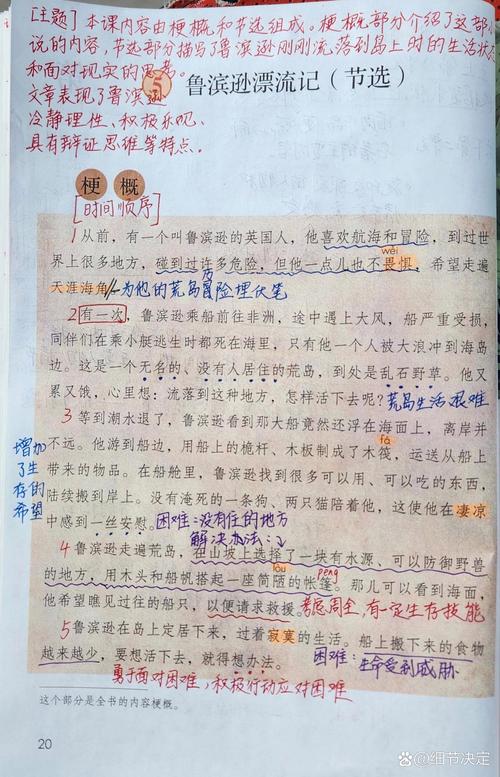 [主题] 本课内容由梗概和节选组成。梗概部分介绍了这部小
说的内容,节选部分描写了鲁滨逊刚刚流落到岛上时的生活状
和面对现实的思考。
文章表现了鲁滨逊
冷静理性、积极乐观、
具有辩证思维等特点。
5 鲁滨逊漂流记(节选)
梗 概
[时间顺序]
1 从前,有一个叫鲁滨逊的英国人,他喜欢航海和冒险,到过世
wèi
界上很多地方,碰到过许多危险,但他一点儿也不畏惧,希望走遍
天涯海角。为他的荒岛冒险埋伏笔
2 有一次,鲁滨逊乘船前往非洲,途中遇上大风,船严重受损,
同伴们在乘小艇逃生时都死在海里,只有他一个人被大浪冲到海岛
边。这是一个无名的、没有人居住的荒岛,到处是乱石野草。他又
累又饿,心里想:流落到这种地方,怎样活下去呢?荒岛生活艰难
3 等到潮水退了,鲁滨逊看到那大船竟然还浮在海面上,离岸并
fá
不远。他游到船边,用船上的桅杆、木板制成了木筏,运送从船上
带来的物品。在船舱里,鲁滨逊找到很多可以用、可以吃的东西,
陆续搬到岸上。没有淹死的一条狗、两只猫陪着他,这使他在凄凉
中感到一丝安慰。困难:没有住的地方
增加
了生
存的
希望
解决办法:↓
4 鲁滨逊走遍荒岛,在山坡上选择了一块有水源、可以防御野兽
lòu
péng
的地方,用木头和船帆搭起一座简陋的帐篷。那儿可以看到海面,
他希望瞧见过往的船只,以便请求救援。考虑周全,有一定生存技能
5 鲁滨逊在岛上定居下来,过着寂寞的生活。船上搬下来的食物
越来越少,要想活下去,就得想办法。
困难:生命受到威胁
勇于面对困难,积极行动应对困难
这个部分是全书的内容梗概。
20
@细节决定